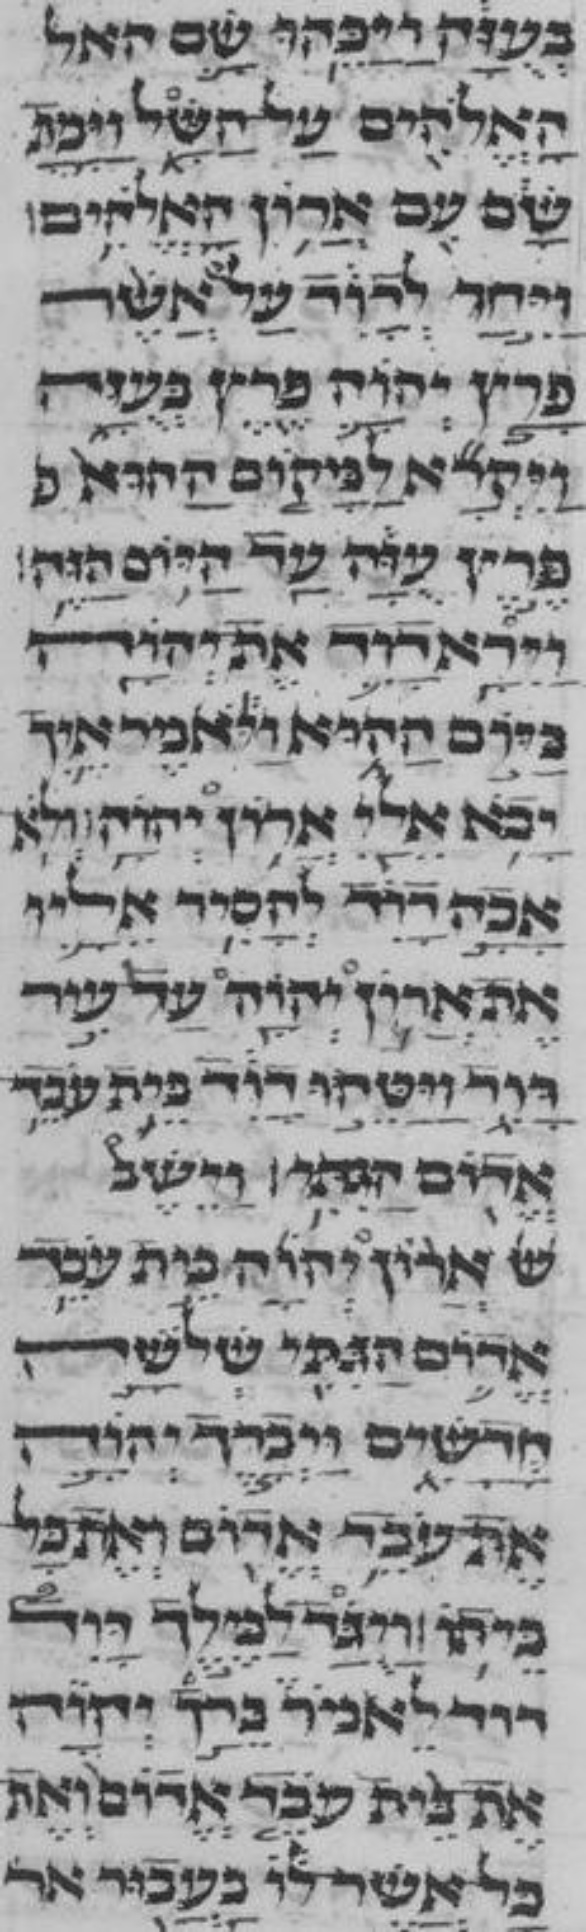 בעזה ויכהו שם האל
האלהים על השל וימת
שם עם ארון האלהים
ויחר לדוד על אשר
פרץ יהוה פרץ בעזה
ויקרא למקום ההוא פ
פרץ עזה עד היום הזה
וירא דוד את יהוה
ביום ההוא ויאמר איך
יבא אלי ארון יהוה ולא
אבה דוד להסיר אליו
את ארון יהוה על עיר
דוד ויטהו דוד בית עבד
אדום הגתי וישב
ש ארון יהוה בית עבד
אדום הגתי שלשה
חדשים ויברך יהוה
את עבד אדום ואת כל
ביתו ויגד למלך דוד
דוד לאמר ברך יהוה
את בית עבד אדום ואת
כל אשר לו בעבור אר